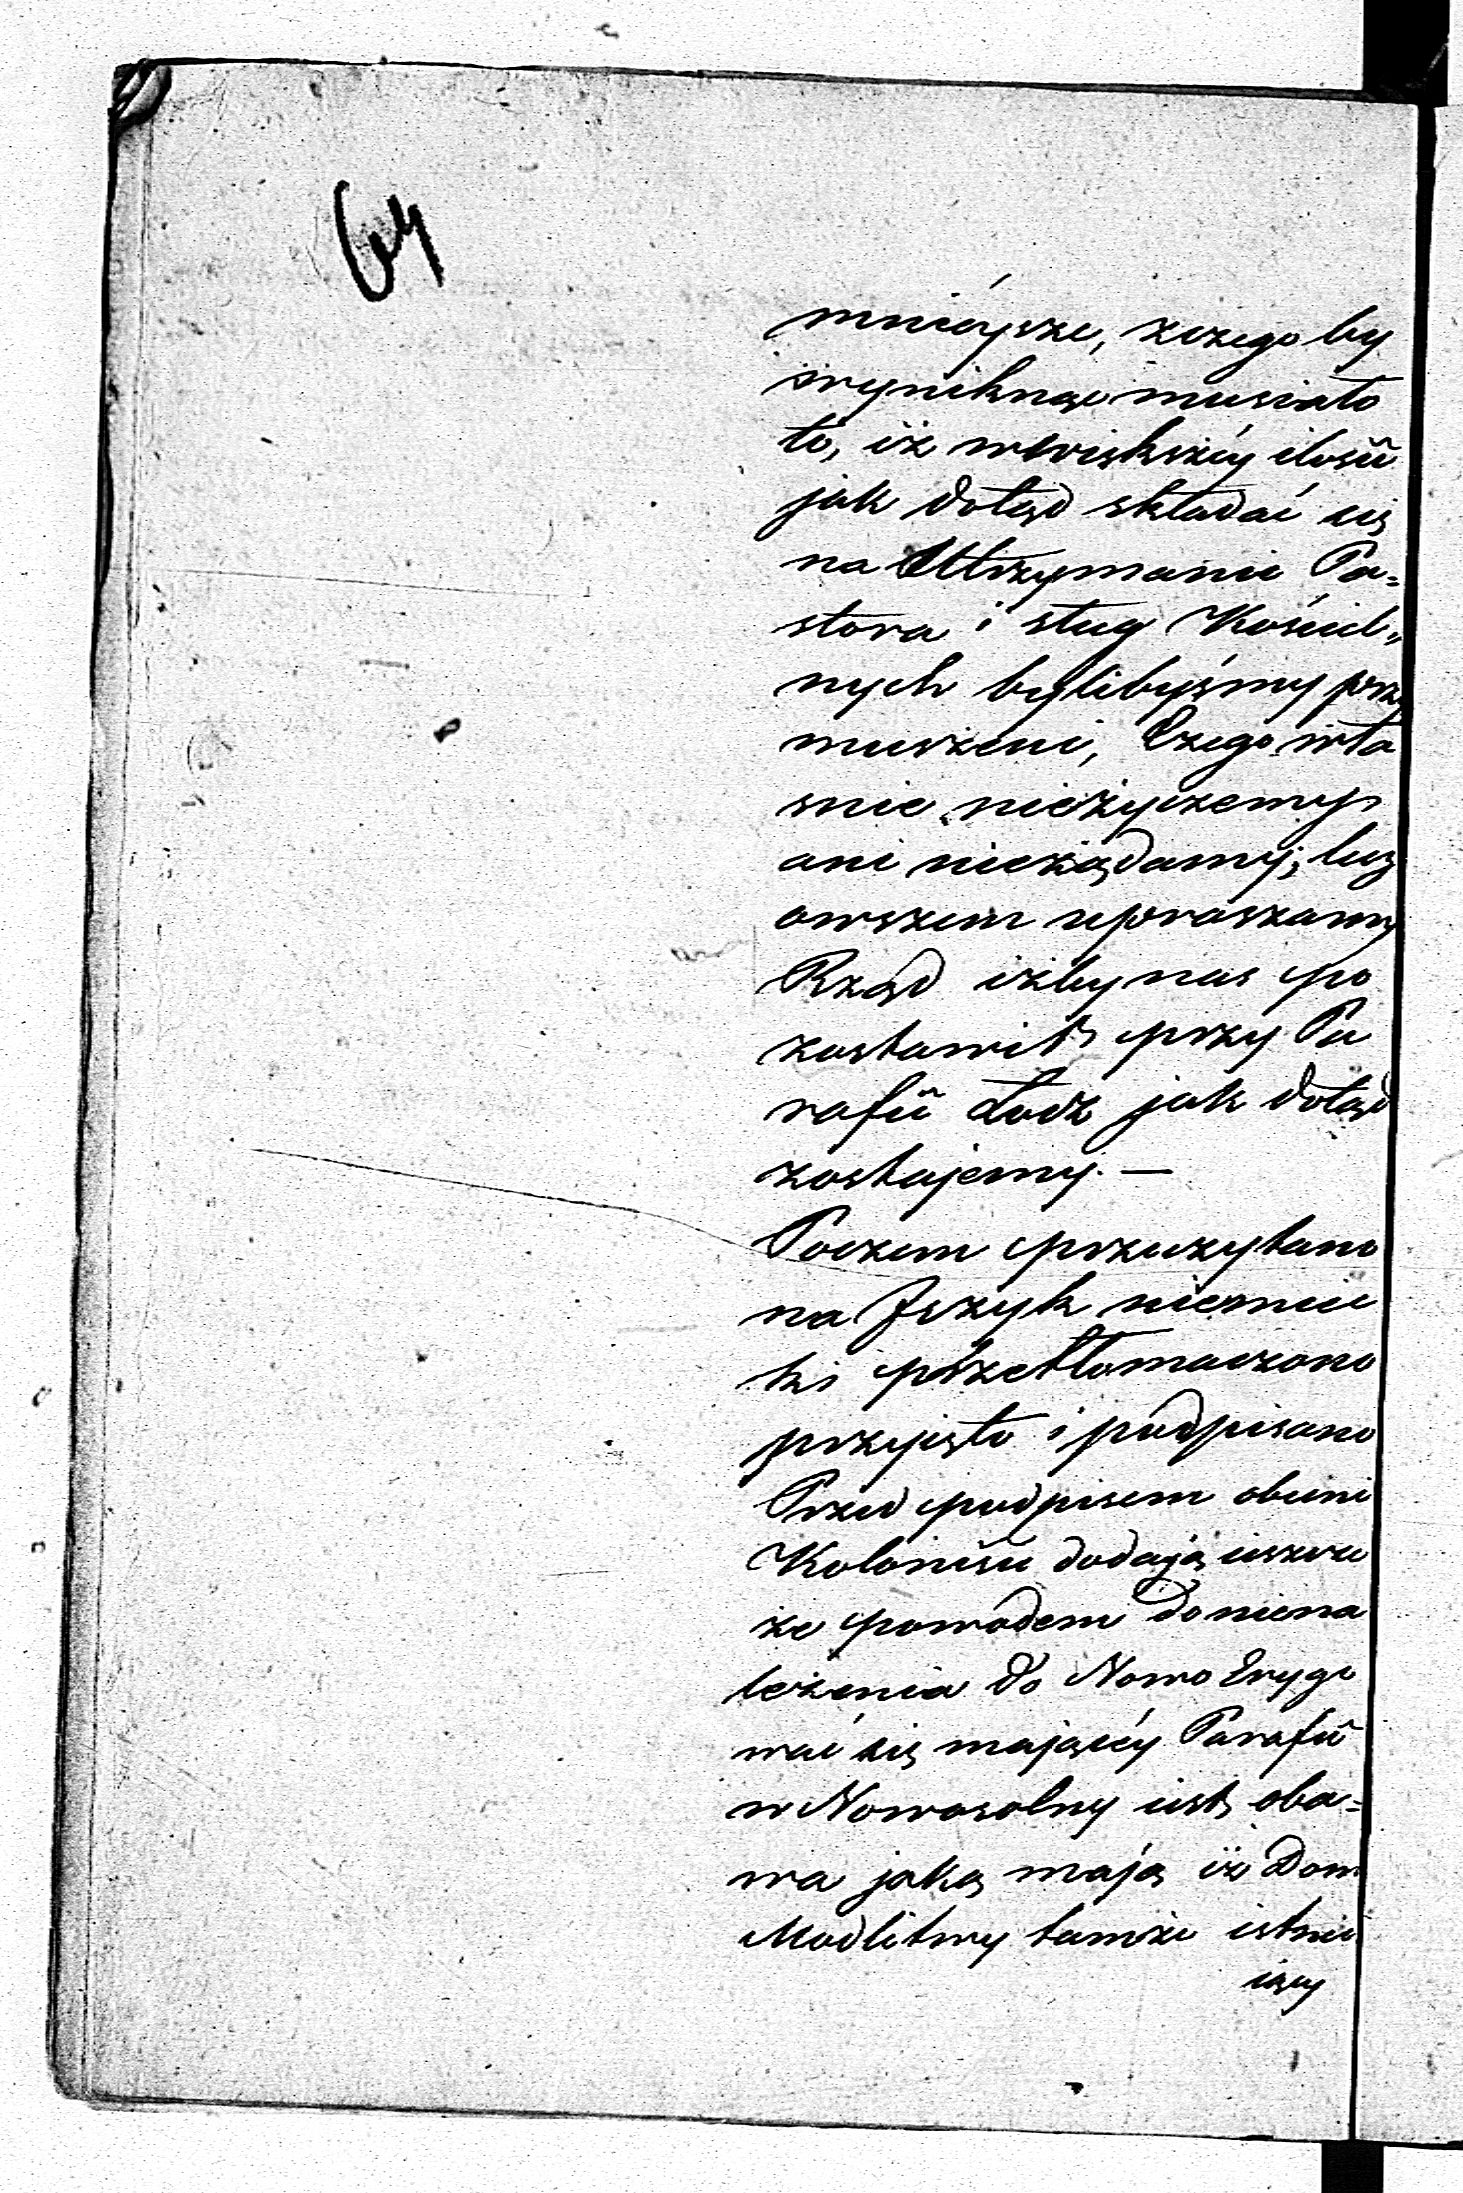 64
mnieysze, zczego by
wyniknąc musiało
to, iż wwiększéy ilosci
jak dotąd składać się
na Utrzymanie Pa=
stora i sług Kościel„
nych bylibyśmy przy
muszeni, Czego wła
snie nieżyczemy
ani nieżądamy, lecz
owszem upraszamy
Rząd iżby nas po
zostawił przy Pa
rafii Łodz jak dotąd
zostajemy. —
Poczem przeczytano
na Język niemiec
ki przetłomaczono
przyięto i podpisano
Przed podpisem obecni
Koloniści dodają ieszcze
że powodem do niena
leżenia do Nowo Erygo
wać się mającéy Parafii
w Nowosolny iest oba=
wa jaką mają iż Dom
Modlitwy tamże istnie
iący